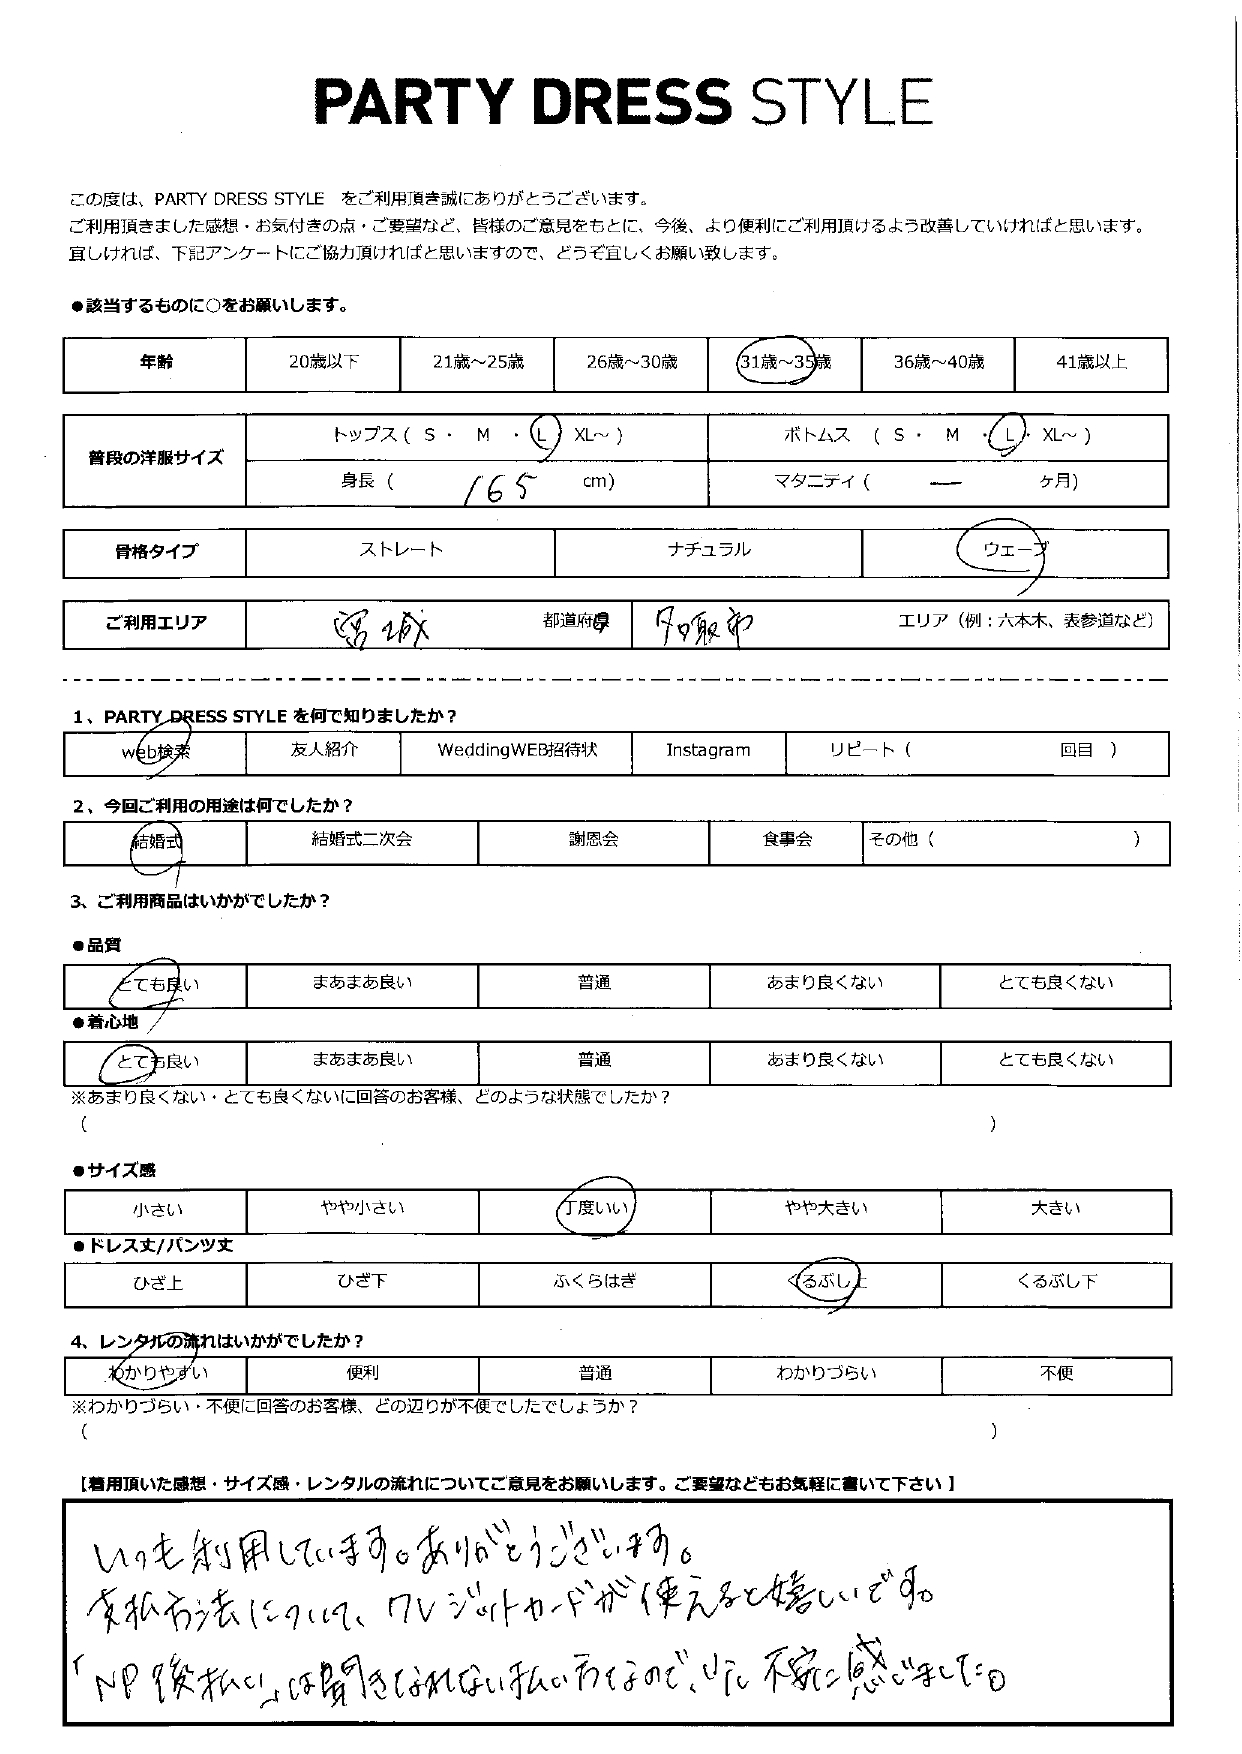 PARTY DRESS STYLE
この度は、PARTY DRESS STYLE をご利用頂き誠にありがとうございます。
ご利用頂きました感想・お気付きの点・ご要望など、皆様のご意見をもとに、今後、より便利にご利用頂けるよう改善していければと思います。
宜しければ、下記アンケートにご協力頂ければと思いますので、どうぞ宜しくお願い致します。
●該当するものに○をお願いします。
年齢 20歳以下 21歳～25歳 26歳～30歳 31歳～35歳 36歳～40歳 41歳以上
普段の洋服サイズ トップス ( S ・ M ・ L ・ XL～ ) ボトムス ( S ・ M ・ L ・ XL～ )
身長 ( 165 cm) マタニティ ( ー ケ月)
骨格タイプ ストレート ナチュラル ウェーブ
ご利用エリア 宮城 都道府県 名取市 エリア（例：六本木、表参道など）
1、PARTY DRESS STYLE を何で知りましたか？
web検索 友人紹介 WeddingWEB招待状 Instagram リピート ( 回目 )
2、今回ご利用の用途は何でしたか？
結婚式 結婚式二次会 謝恩会 食事会 その他 ( )
3、ご利用商品はいかがでしたか？
●品質
とても良い まあまあ良い 普通 あまり良くない とても良くない
●着心地
とても良い まあまあ良い 普通 あまり良くない とても良くない
※あまり良くない・とても良くないに回答のお客様、どのような状態でしたか？
( )
●サイズ感
小さい やや小さい 丁度いい やや大きい 大きい
●ドレス丈/パンツ丈
ひざ上 ひざ下 ふくらはぎ くるぶし上 くるぶし下
4、レンタルの流れはいかがでしたか？
わかりやすい 便利 普通 わかりづらい 不便
※わかりづらい・不便に回答のお客様、どの辺りが不便でしたでしょうか？
( )
【着用頂いた感想・サイズ感・レンタルの流れについてご意見をお願いします。ご要望などもお気軽に書いて下さい 】
いつも利用しています。ありがとうございます。
支払方法について、クレジットカードが使えると嬉しいです。
「NP後払い」は聞きなれない払い方なので、少し不安に感じました。